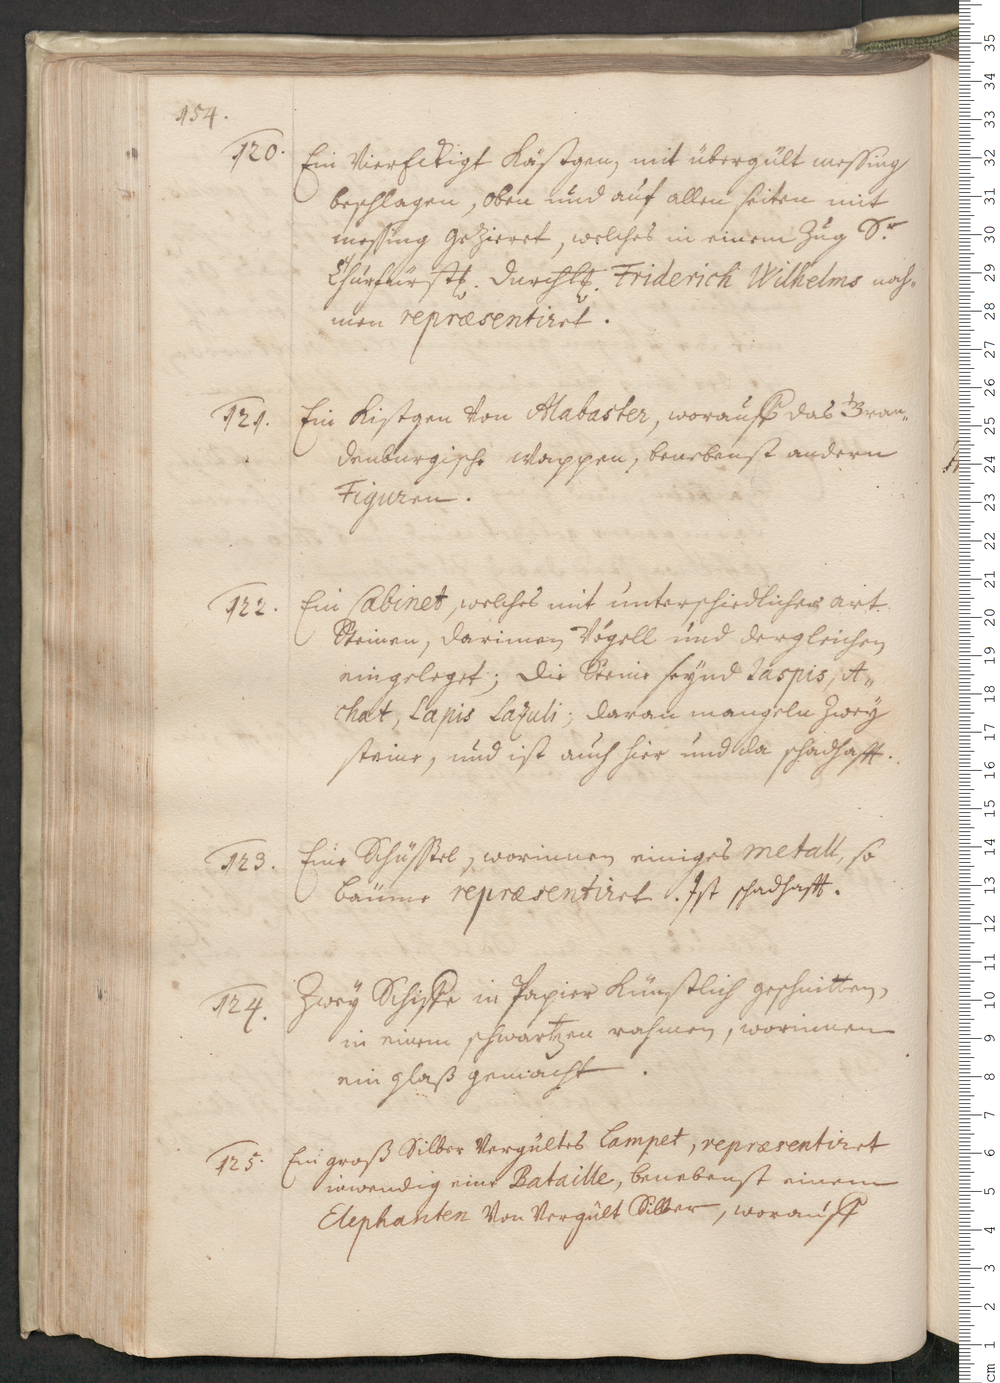 154.
120. Ein Viereckigt Kästgen, mit übergült messing
beschlagen, oben und auf allen seiten mit
messing gezieret, welches in einem Zug Sr.
Churfürstl. Durchlt. Friderich Wilhelms nah-
men repræsentiret.
121. Ein Kistgen von Alabaster, worauff das Bran-
denburgische Wappen, benebenst andern
Figuren.
122. Ein Cabinet, welches mit unterschiedlicher art
Steinen, darinnen Vögell und dergleichen
eingeleget; die Steine seynd Jaspis, A-
chat, Lapis Lazuli; daran mangeln zwey
steine, und ist auch hier und da schadhafft.
123. Eine Schüssel, worinnen einiges metall, so
bäume repræsentiret. Ist schadhafft.
124. Zwey Schiffe in Papier künstlich geschnitten,
in einem schwartzen rahmen, worinnen
ein glaß gemacht.
125. Ein groß Silber Vergültes Lampet, repræsentiret
inwendig eine Bataille, benebenst einem
Elephanten von Vergült Silber, worauff
cm 1 2 3 4 5 6 7 8 9 10 11 12 13 14 15 16 17 18 19 20 21 22 23 24 25 26 27 28 29 30 31 32 33 34 35